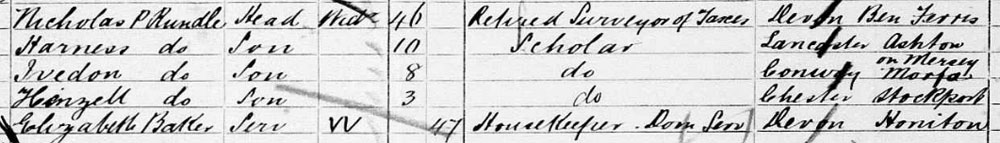 Nicholas P Rundle Head Widr 46 Retired Surveyor of Taxes Devon Ben Ferris
Harness do Son 10 Scholar Lancaster Ashton on Mersey
Ivedon do Son 8 do Conway Morfa
Hingell do Son 3 do Chester Stockport
Elizabeth Baker Serv W 47 Housekeeper Dom Serv Devon Honiton